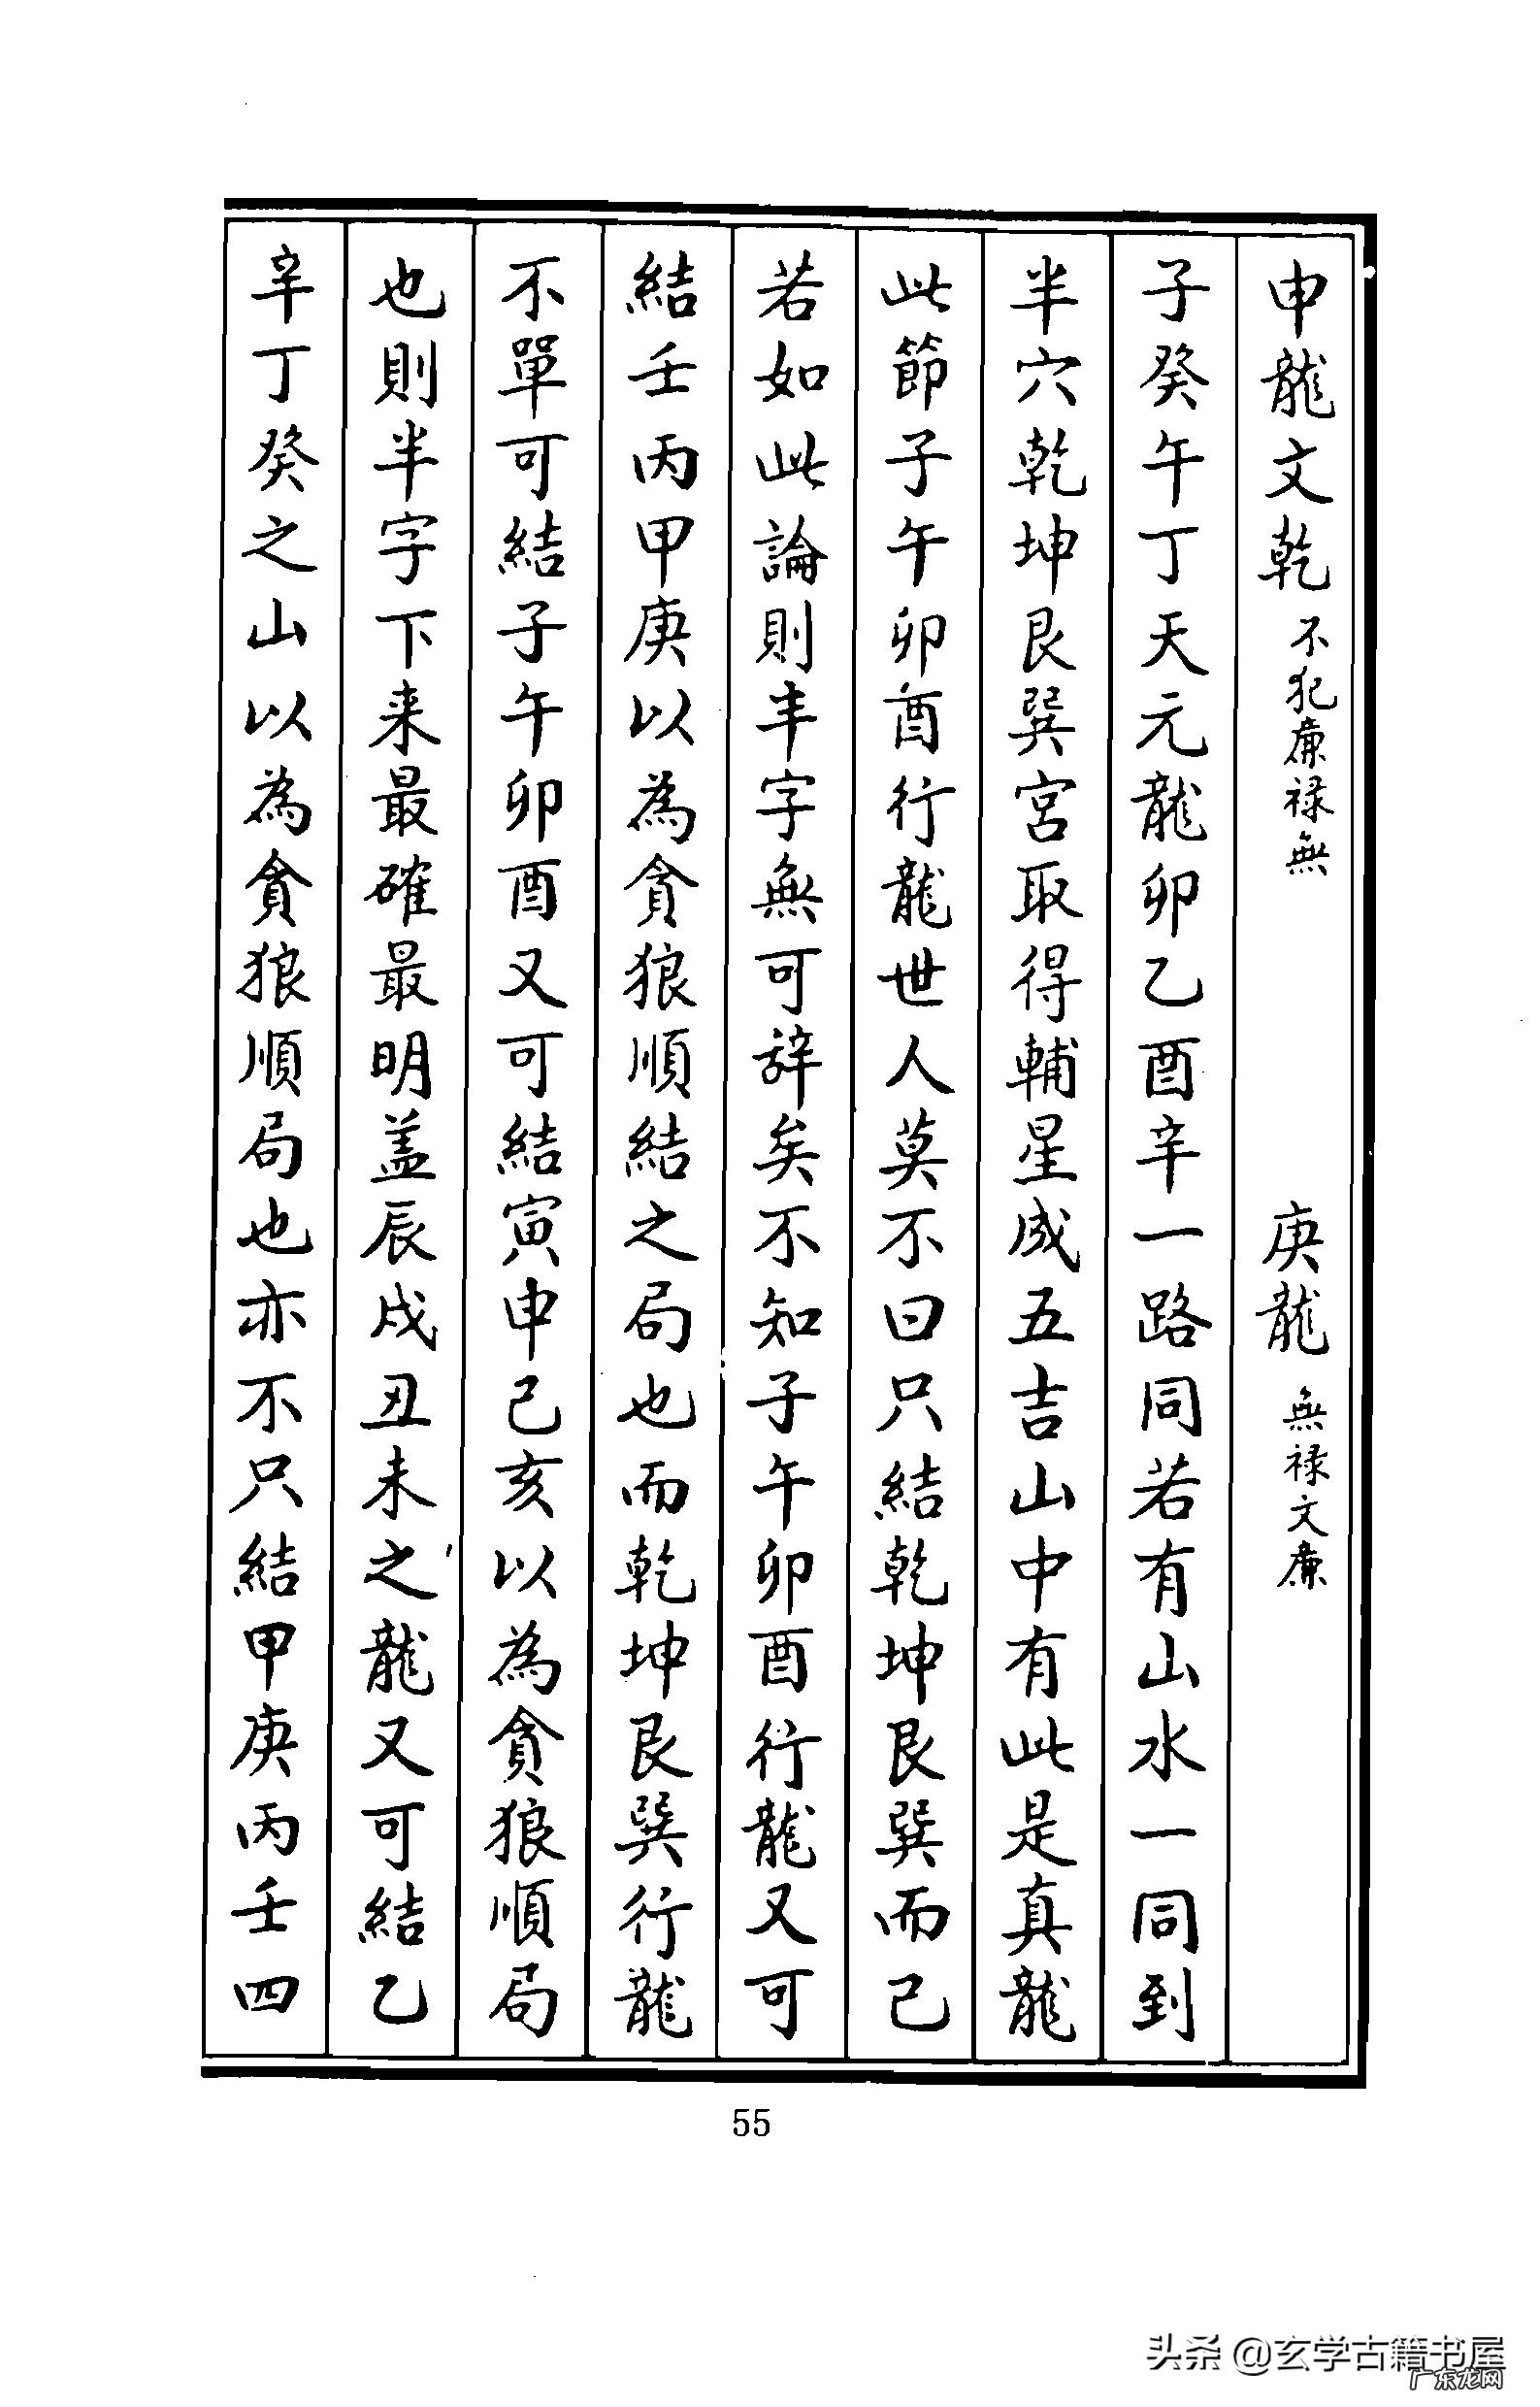 申龍文乾不犯廉禄無 庚龍無禄文廉
子癸午丁天元龍卯乙酉辛一路同若有山水一同到
半穴乾坤艮巽宮取得輔星成五吉山中有此是真龍
此節子午卯酉行龍世人莫不曰只結乾坤艮巽而己
若如此論則半字無可辞矣不知子午卯酉行龍又可
結壬丙甲庚以為貪狼順結之局也而乾坤艮巽行龍
不單可結子午卯酉又可結寅申己亥以為貪狼順局
也則半字下来最確最明盖辰戌丑未之龍又可結乙
辛丁癸之山以為貪狼順局也亦不只結甲庚丙壬四
55
头条 @玄学古籍书屋
广东龙网